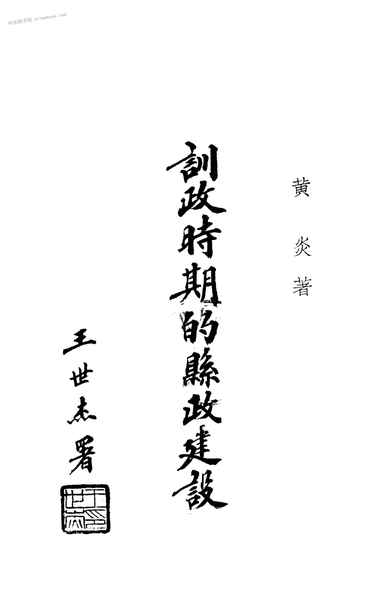 黄炎著
訓政時期的縣政建設
王世杰署